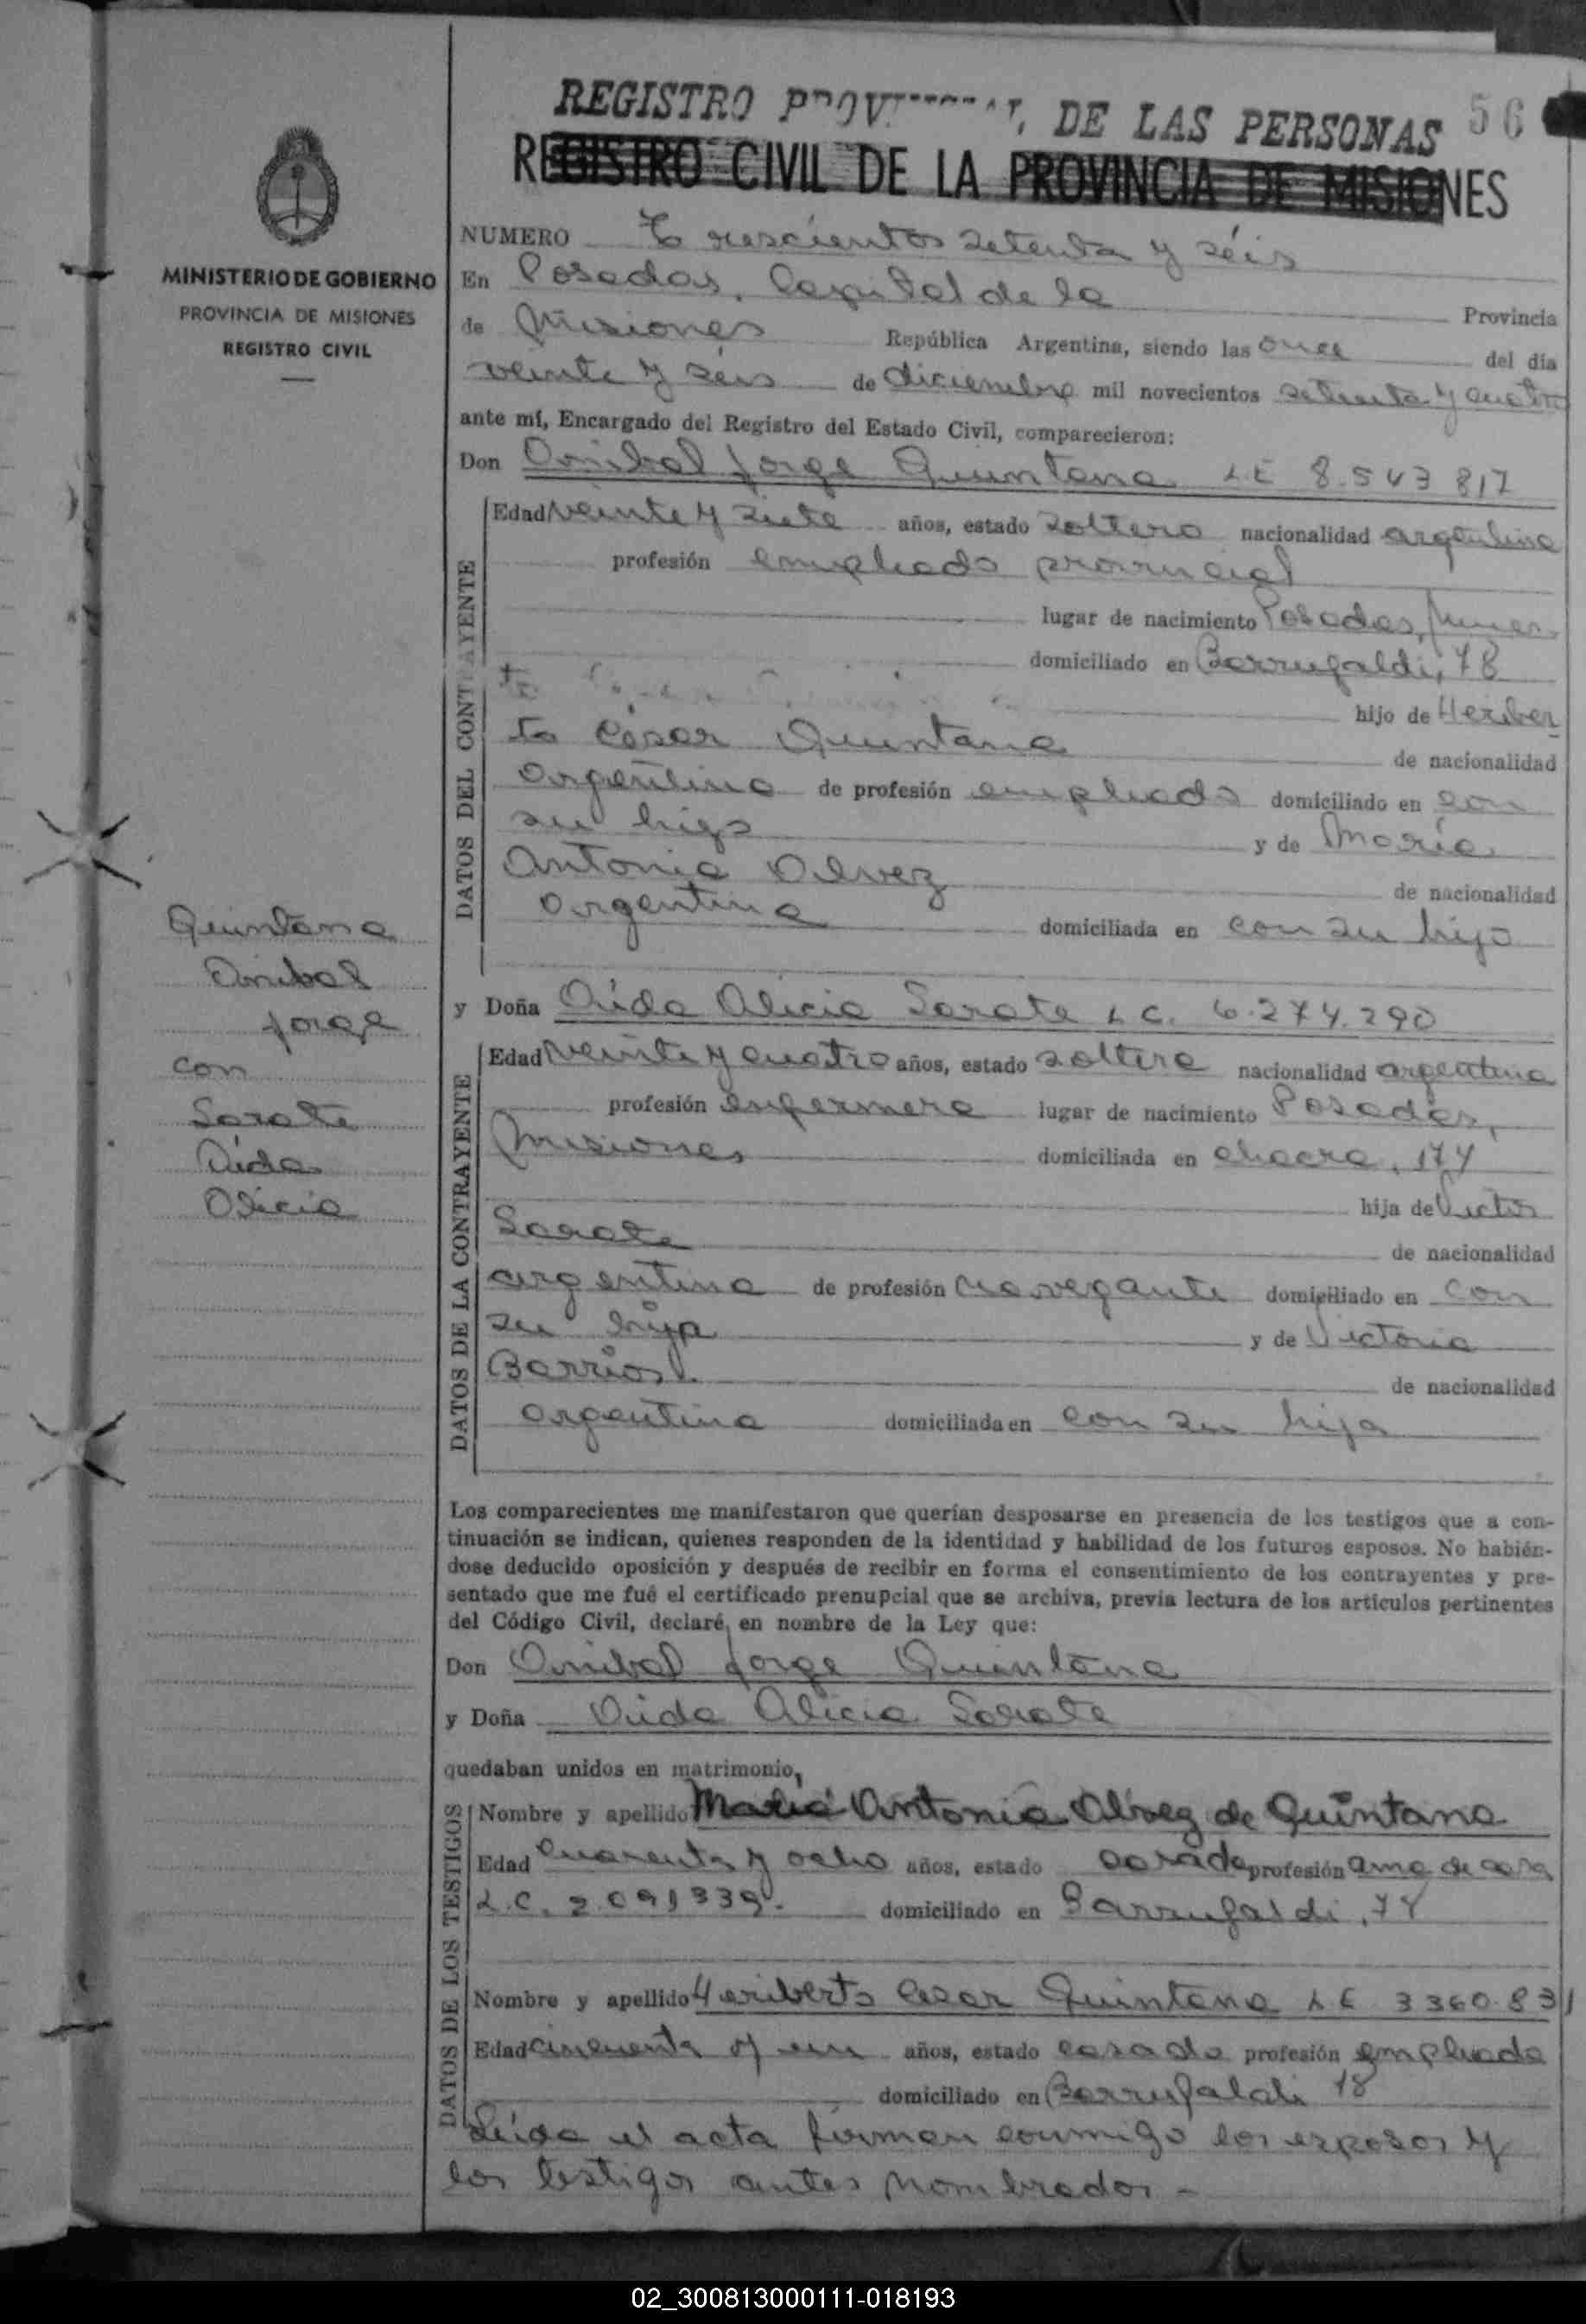 56
REGISTRO PROVINCIAL DE LAS PERSONAS
REGISTRO CIVIL DE LA PROVINCIA DE MISIONES
MINISTERIO DE GOBIERNO
PROVINCIA DE MISIONES
REGISTRO CIVIL
NUMERO Trescientos setenta y séis
En Posadas, Capital de la Provincia
de Misiones República Argentina, siendo las once del día
veinte y séis de diciembre mil novecientos setenta y cuatro
ante mí, Encargado del Registro del Estado Civil, comparecieron:
Don Anibal Jorge Quintana L.E 8.543 817
DATOS DEL CONTRAYENTE
Edad veinte y siete años, estado soltero nacionalidad argentina
profesión empleado provincial
lugar de nacimiento Posadas,
domiciliado en Barrufaldi, 78
hijo de Heriber
to César Quintana de nacionalidad
argentina de profesión empleado domiciliado en con
su hijo y de María
Antonia Alvez de nacionalidad
argentina domiciliada en con su hijo
Quintana
Anibal
Jorge
con
Sarate
Aída
Alicia
y Doña Aída Alicia Sarate L.C. 6.274.290
DATOS DE LA CONTRAYENTE
Edad veinte y cuatro años, estado soltera nacionalidad argentina
profesión enfermera lugar de nacimiento Posadas,
Misiones domiciliada en chacra, 174
hija de Victor
Sarate de nacionalidad
argentina de profesión navegante domiciliado en con
su hija y de Victoria
Barrios de nacionalidad
argentina domiciliada en con su hija
Los comparecientes me manifestaron que querían desposarse en presencia de los testigos que a con-
tinuación se indican, quienes responden de la identidad y habilidad de los futuros esposos. No habién-
dose deducido oposición y después de recibir en forma el consentimiento de los contrayentes y pre-
sentado que me fué el certificado prenupcial que se archiva, previa lectura de los artículos pertinentes
del Código Civil, declaré, en nombre de la Ley que:
Don Anibal Jorge Quintana
y Doña Aída Alicia Sarate
quedaban unidos en matrimonio,
DATOS DE LOS TESTIGOS
Nombre y apellido María Antonia Alvez de Quintana
Edad cuarenta y ocho años, estado casada profesión ama de casa
L.C. 2.091339. domiciliado en Barrufaldi, 78
Nombre y apellido Heriberto Cesar Quintana L E 3360.831
Edad cincuenta y un años, estado casado profesión empleado
domiciliado en Barrufaldi 78
Leída el acta firman conmigo los esposos y
los testigos antes nombrados -
02_300813000111-018193